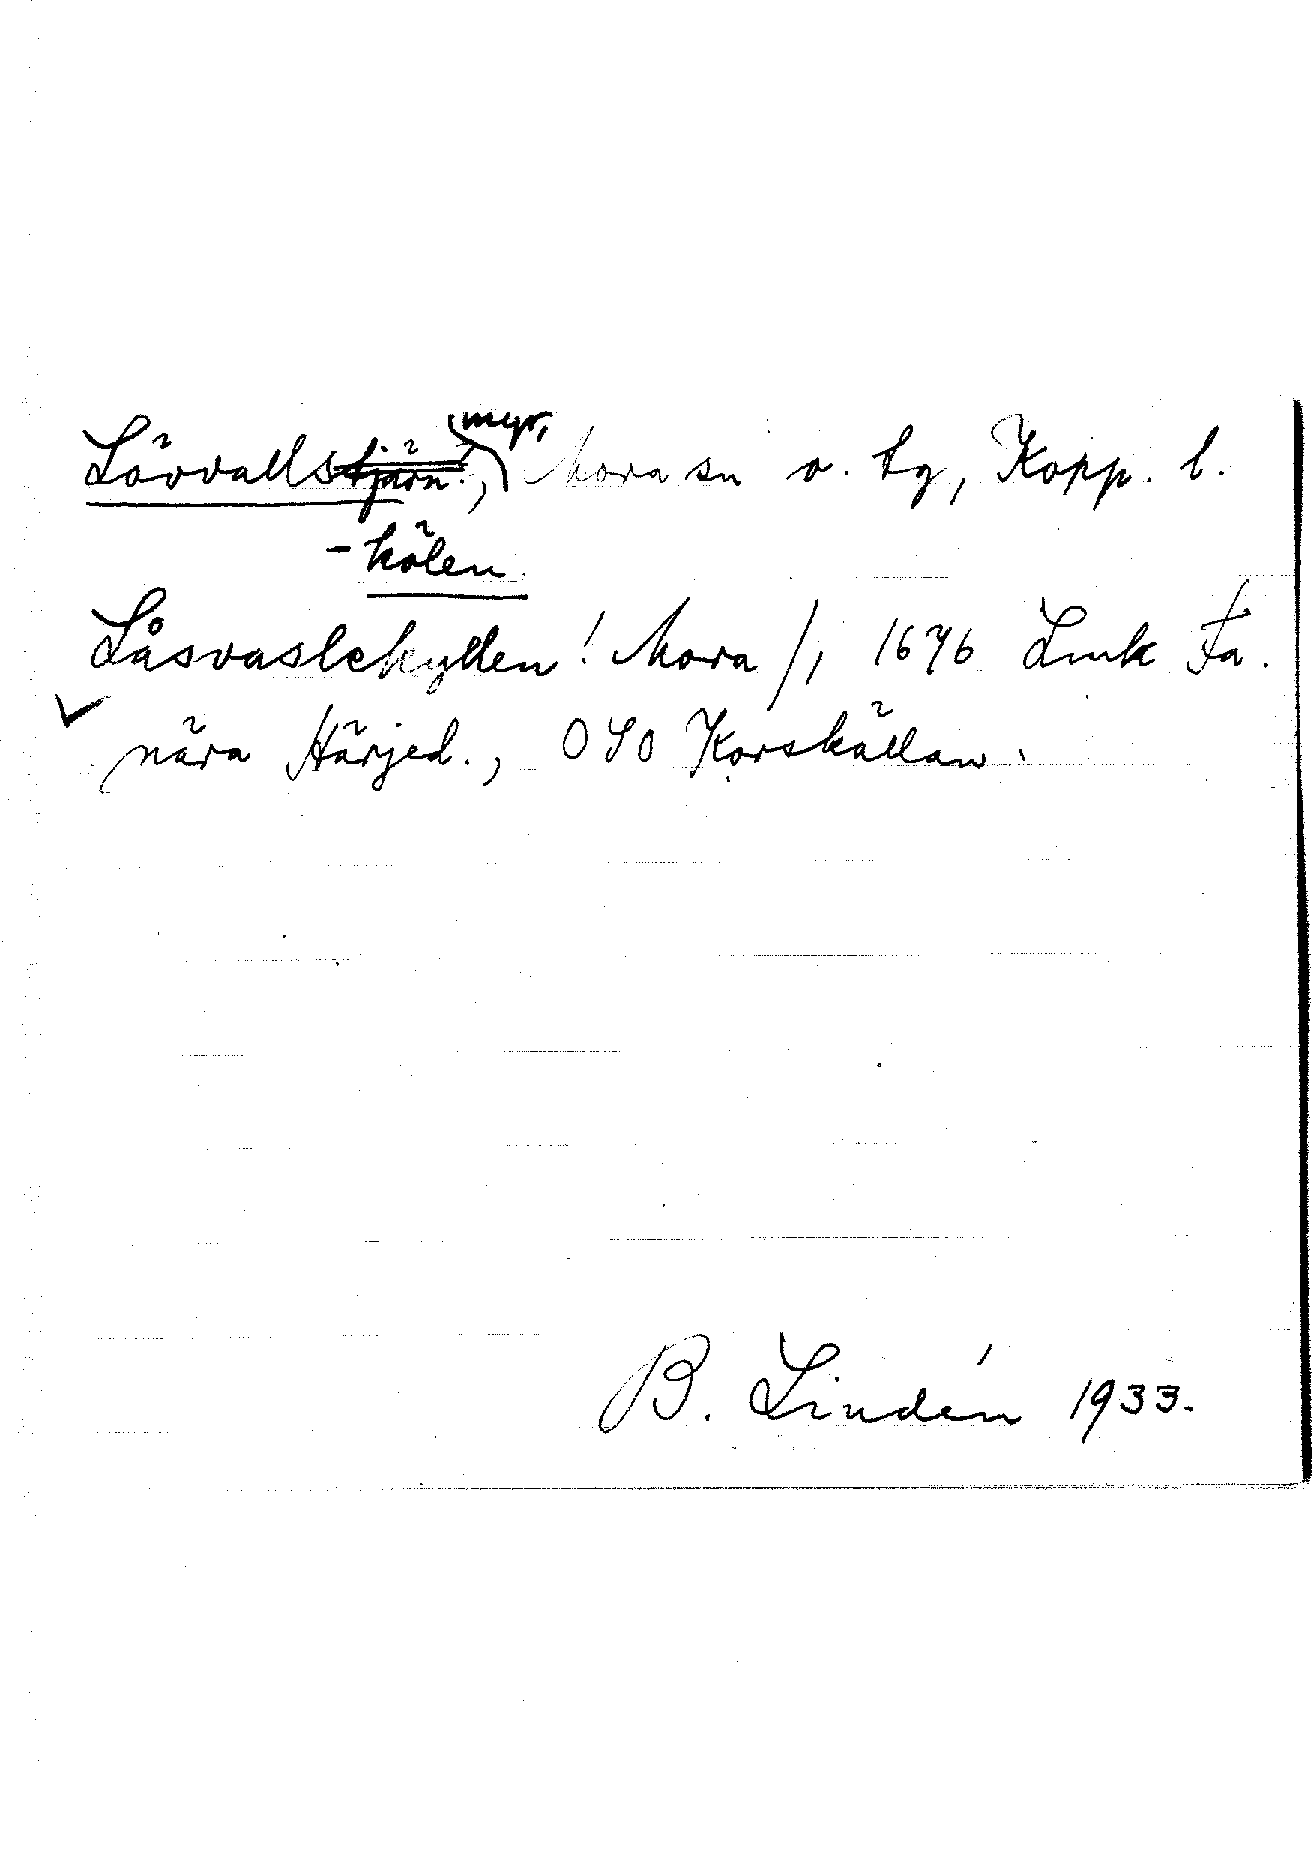 myr,
Lövvallstjärn, Mora sn o. tg, Kopp. l.
- kölen
Låsvaslekyllen! Mora /1 1676 Lmk Fa.
nära Härjed., OSO Korskällan.
B. Lindén 1933.